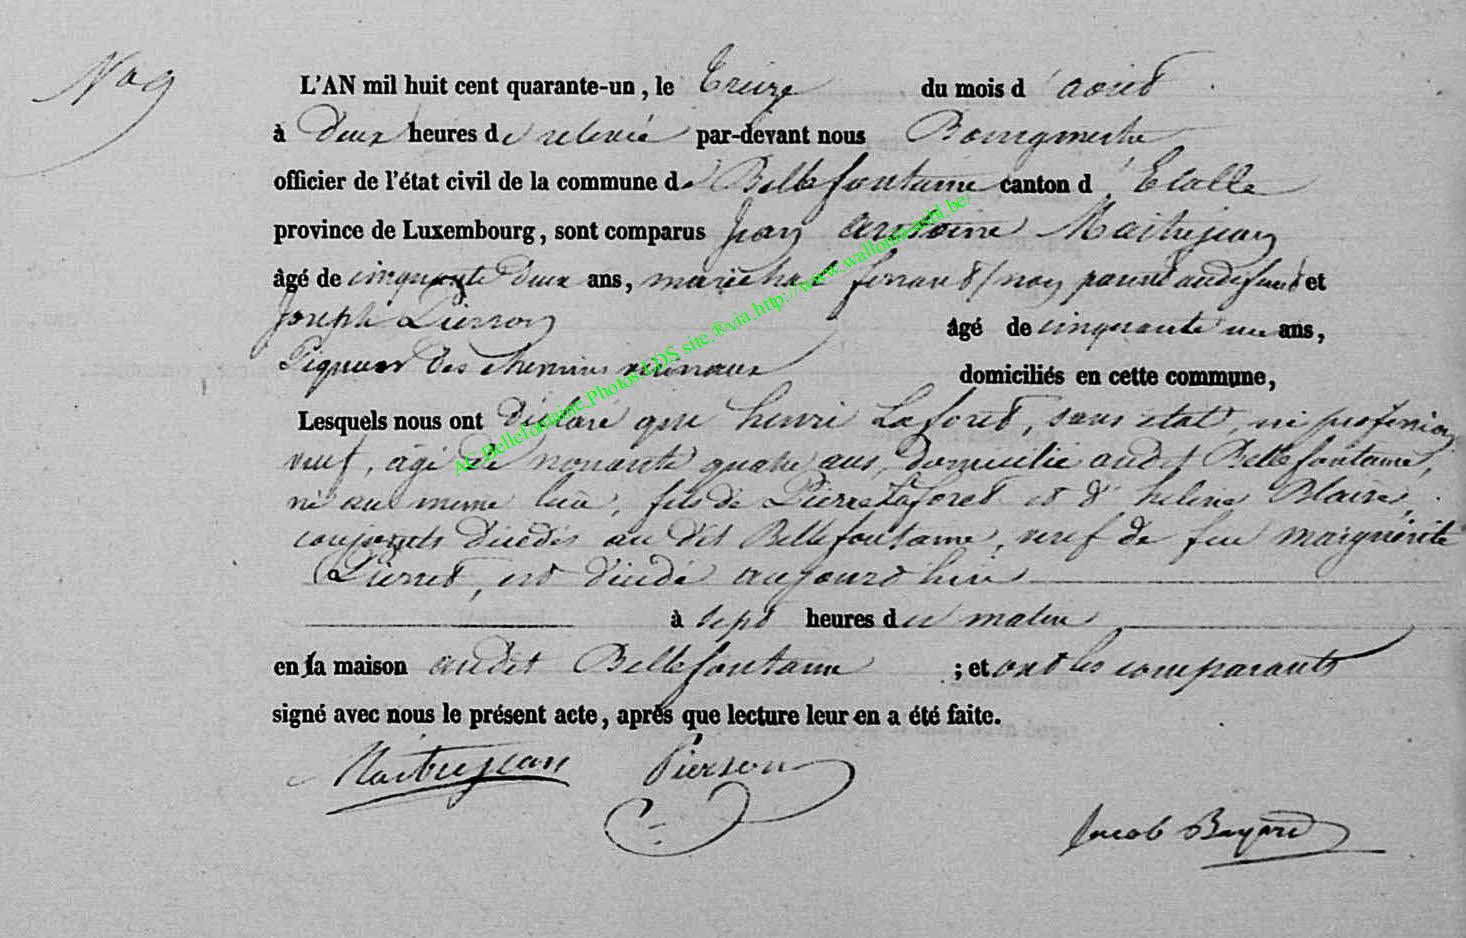 No 9
L'AN mil huit cent quarante-un, le treize du mois d'août
à deux heures de relevée par-devant nous Bourgmestre
officier de l'état civil de la commune de Bellefontaine canton d'Etalle
province de Luxembourg, sont comparus Jean Antoine Maitrejean
âgé de cinquante deux ans, maréchal ferrant, non parent au defunt et
Joseph Pierson âgé de cinquante un ans,
Piqueur des chemins vicinaux domiciliés en cette commune,
Lesquels nous ont déclaré que henri Laforet, sans état, ni profession
veuf, âgé de nonante quatre ans, domicilié audit Bellefontaine,
né au meme lieu, fils de Pierre Laforet et d'helene Blaise,
conjoints décédés au dit Bellefontaine, veuf de feu marguerite
Pierret, est décédé aujourd'hui
à sept heures du matin
en la maison audit Bellefontaine ; et ont les comparants
signé avec nous le présent acte, après que lecture leur en a été faite.
Maitrejean Pierson
Jacob Bayard
AC Bellefontaine Photos LDS site ® via http://www.wallonia-asbl.be/